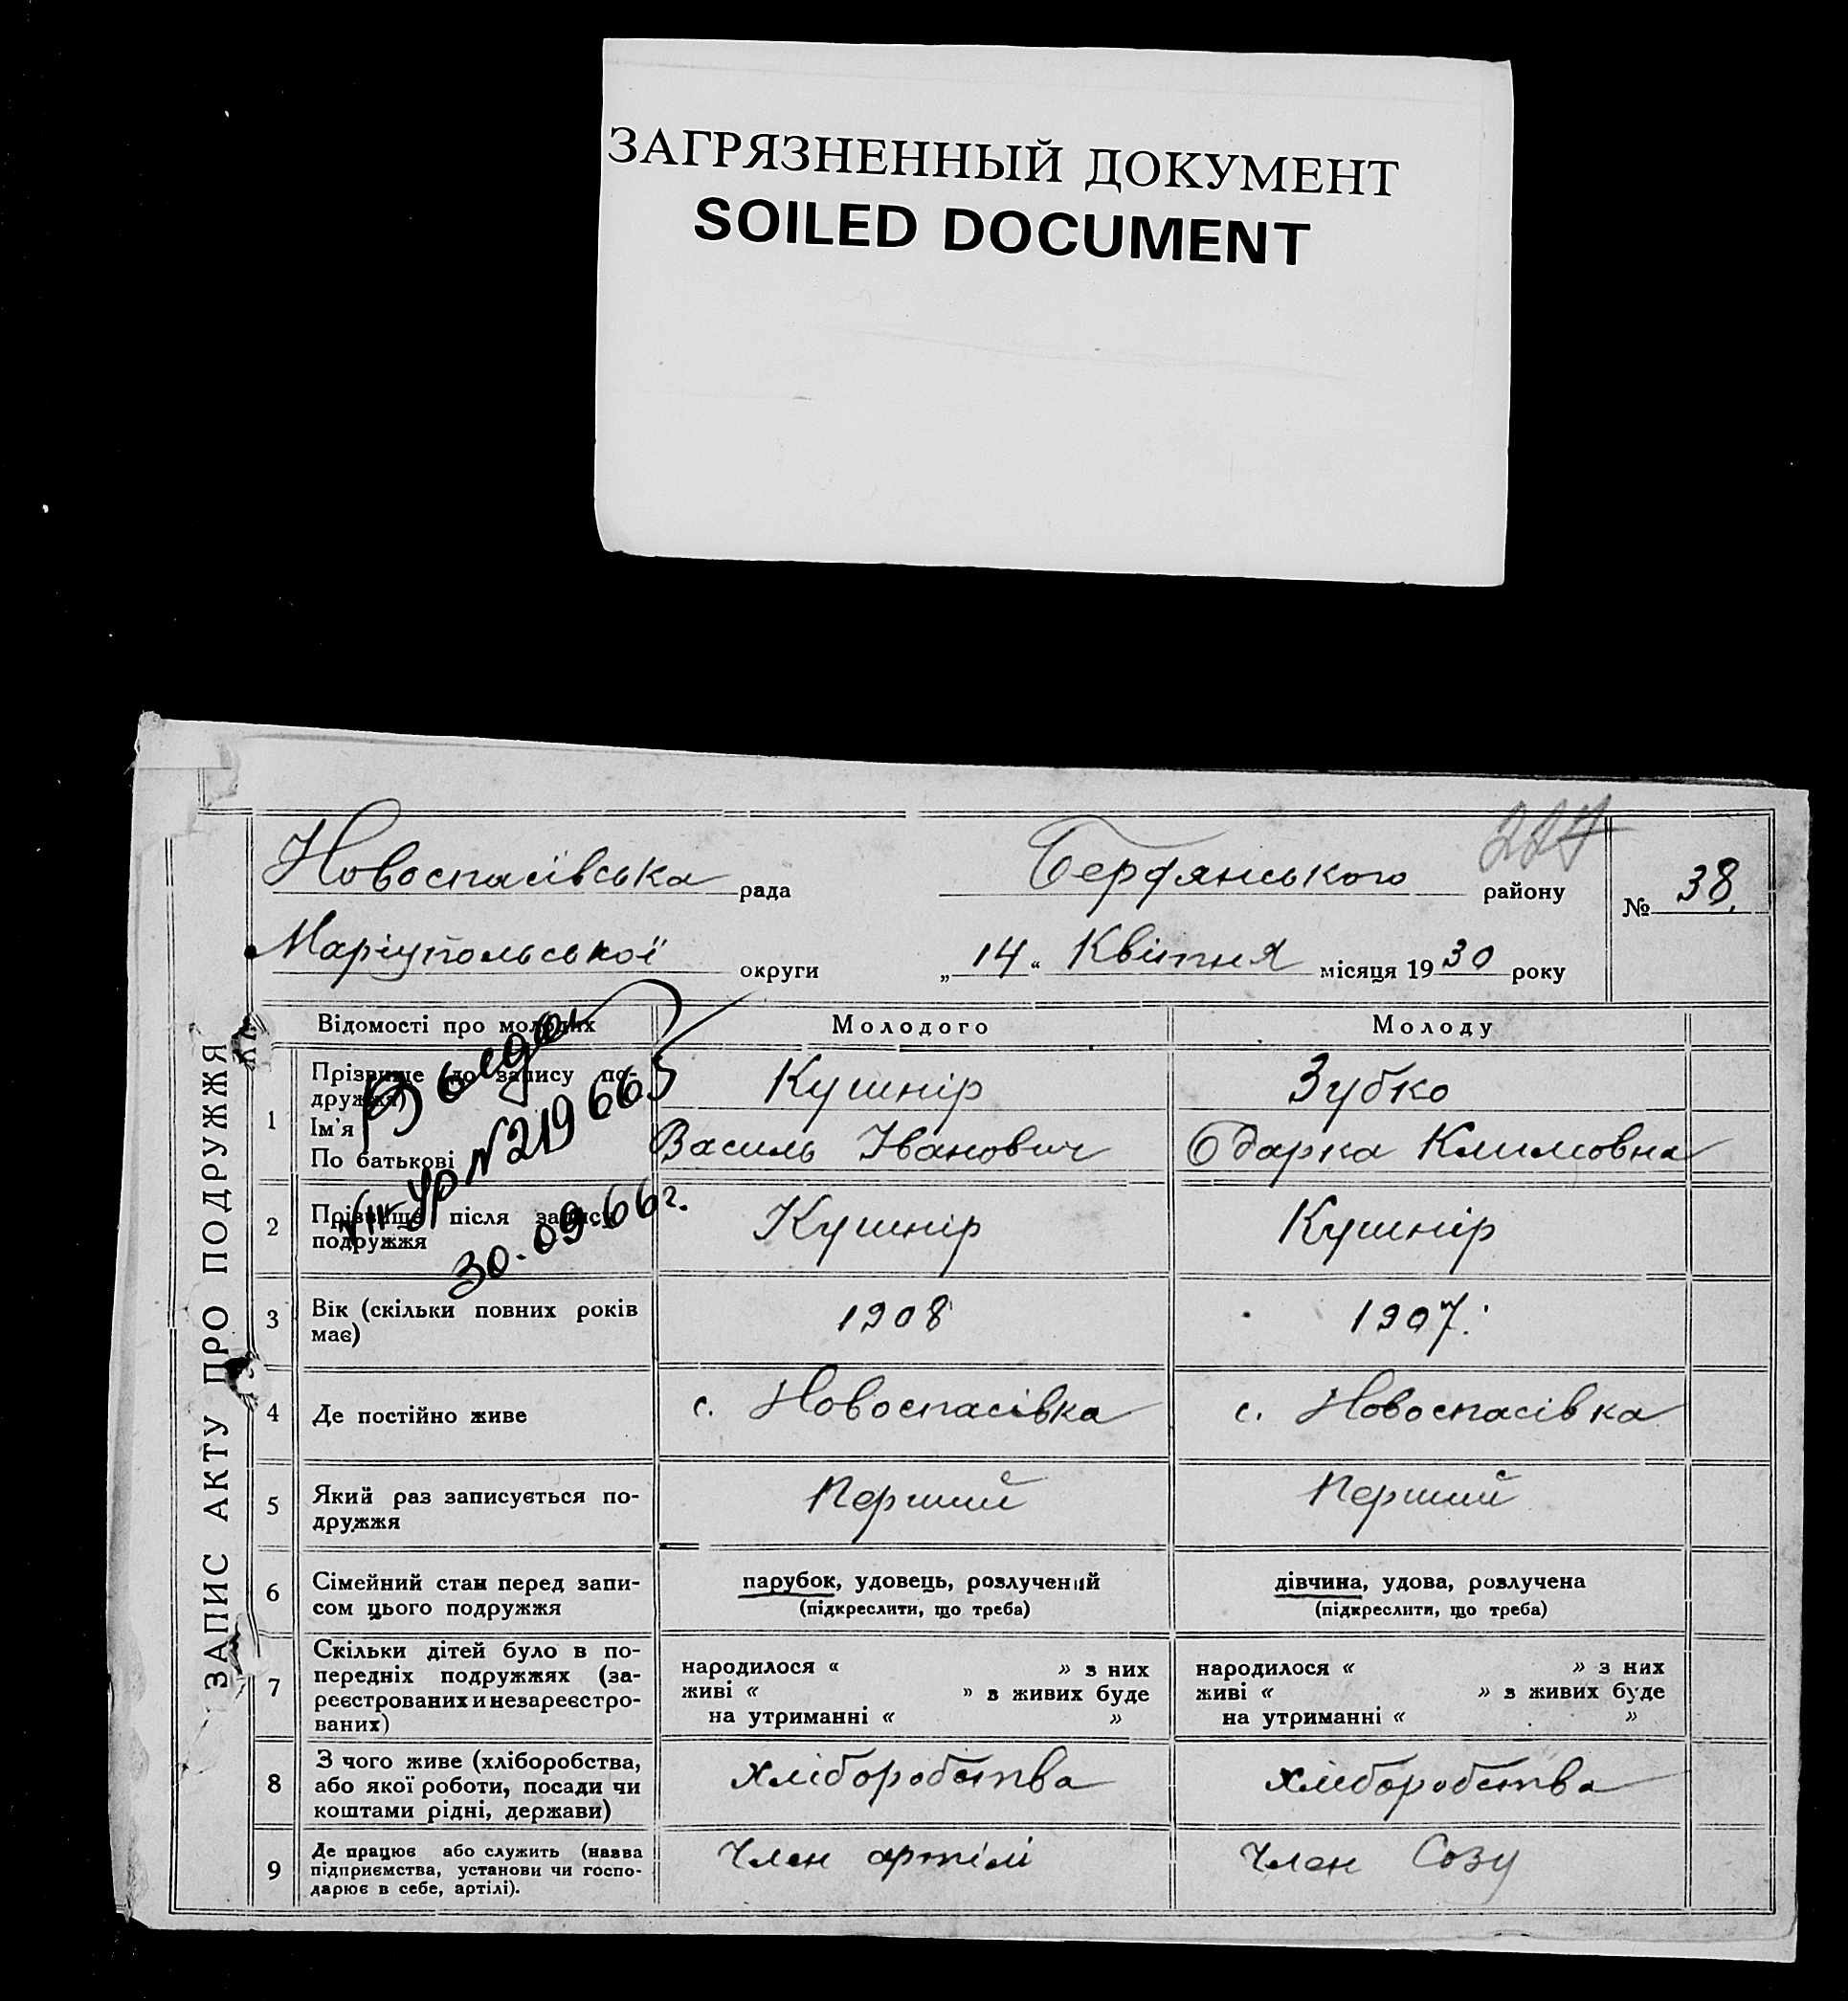 ЗАГРЯЗНЕННЫЙ ДОКУМЕНТ
SOILED DOCUMENT
ЗАПИС АКТУ ПРО ПОДРУЖЖЯ
Новоспасівська рада Бердянського району № 38.
Маріупольської округи „14“ Квітня місяця 1930 року
Відомості про молодих Молодого Молоду
1 Прізвище (до запису по-
дружжя) Кушнір Зубко
Ім'я
По батькові Василь Іванович Одарка Климовна
2 Прізвище після запису
подружжя Кушнір Кушнір
№219665
30.09.66г.
3 Вік (скільки повних років
має) 1908 1907.
4 Де постійно живе с. Новоспасівка с. Новоспасівка
5 Який раз записується по-
дружжя Перший Перший
6 Сімейний стан перед запи-
сом цього подружжя
парубок, удовець, розлучений
(підкреслити, що треба)
дівчина, удова, розлучена
(підкреслити, що треба)
7 Скільки дітей було в по-
передніх подружжях (за-
реєстрованих и незареєстро-
ваних)
народилося “ ” з них
живі “ ” з живих буде
на утриманні “ ”
народилося “ ” з них
живі “ ” з живих буде
на утриманні “ ”
8 З чого живе (хліборобства,
або якої роботи, посади чи
коштами рідні, держави)
хліборобства хліборобства
9 Де працює або служить (назва
підприємства, установи чи госпо-
дарює в себе, артілі).
Член артілі Член Созу